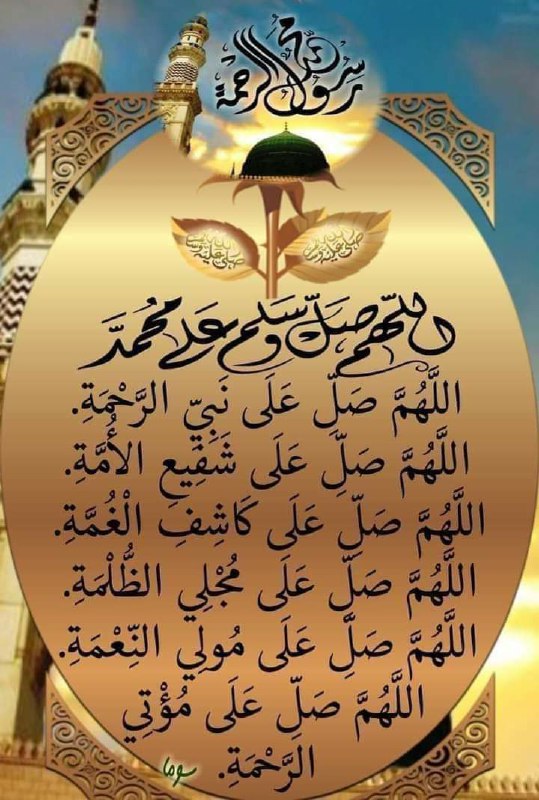 رسول الرحمة
صلى الله عليه وسلم
صلى الله عليه وسلم
اللهم صل وسلم على محمد
اللَّهُمَّ صَلِّ عَلَى نَبِيِّ الرَّحْمَةِ.
اللَّهُمَّ صَلِّ عَلَى شَفِيعِ الأُمَّةِ.
اللَّهُمَّ صَلِّ عَلَى كَاشِفِ الْغُمَّةِ.
اللَّهُمَّ صَلِّ عَلَى مُجْلِي الظُّلْمَةِ.
اللَّهُمَّ صَلِّ عَلَى مُولِي النِّعْمَةِ.
اللَّهُمَّ صَلِّ عَلَى مُؤْتِي
الرَّحْمَةِ.
سوها